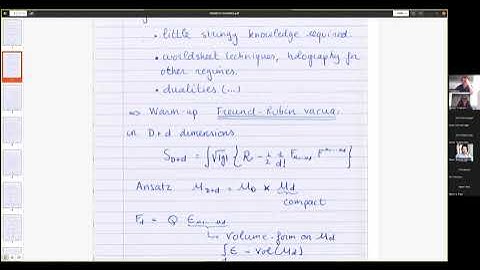 • little stringy knowledge required.
• worldsheet techniques, holography for
other regimes.
• dualities (...)
⇒ Warm-up Freund-Rubin vacua.
in D+d dimensions
S_{D+d} = ∫√|g| { R - 1/2 1/d! F_{μ1...μd} F^{μ1...μd} }
Ansatz M_{D+d} = M_D × M_d
compact
F_d = Q ε_{μ1...μd}
↳ volume-form on M_d
∫ ε = vol(M_d)